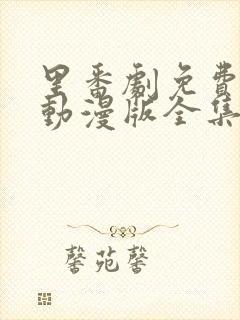 里番劇免費
動漫版全集
馨苑馨